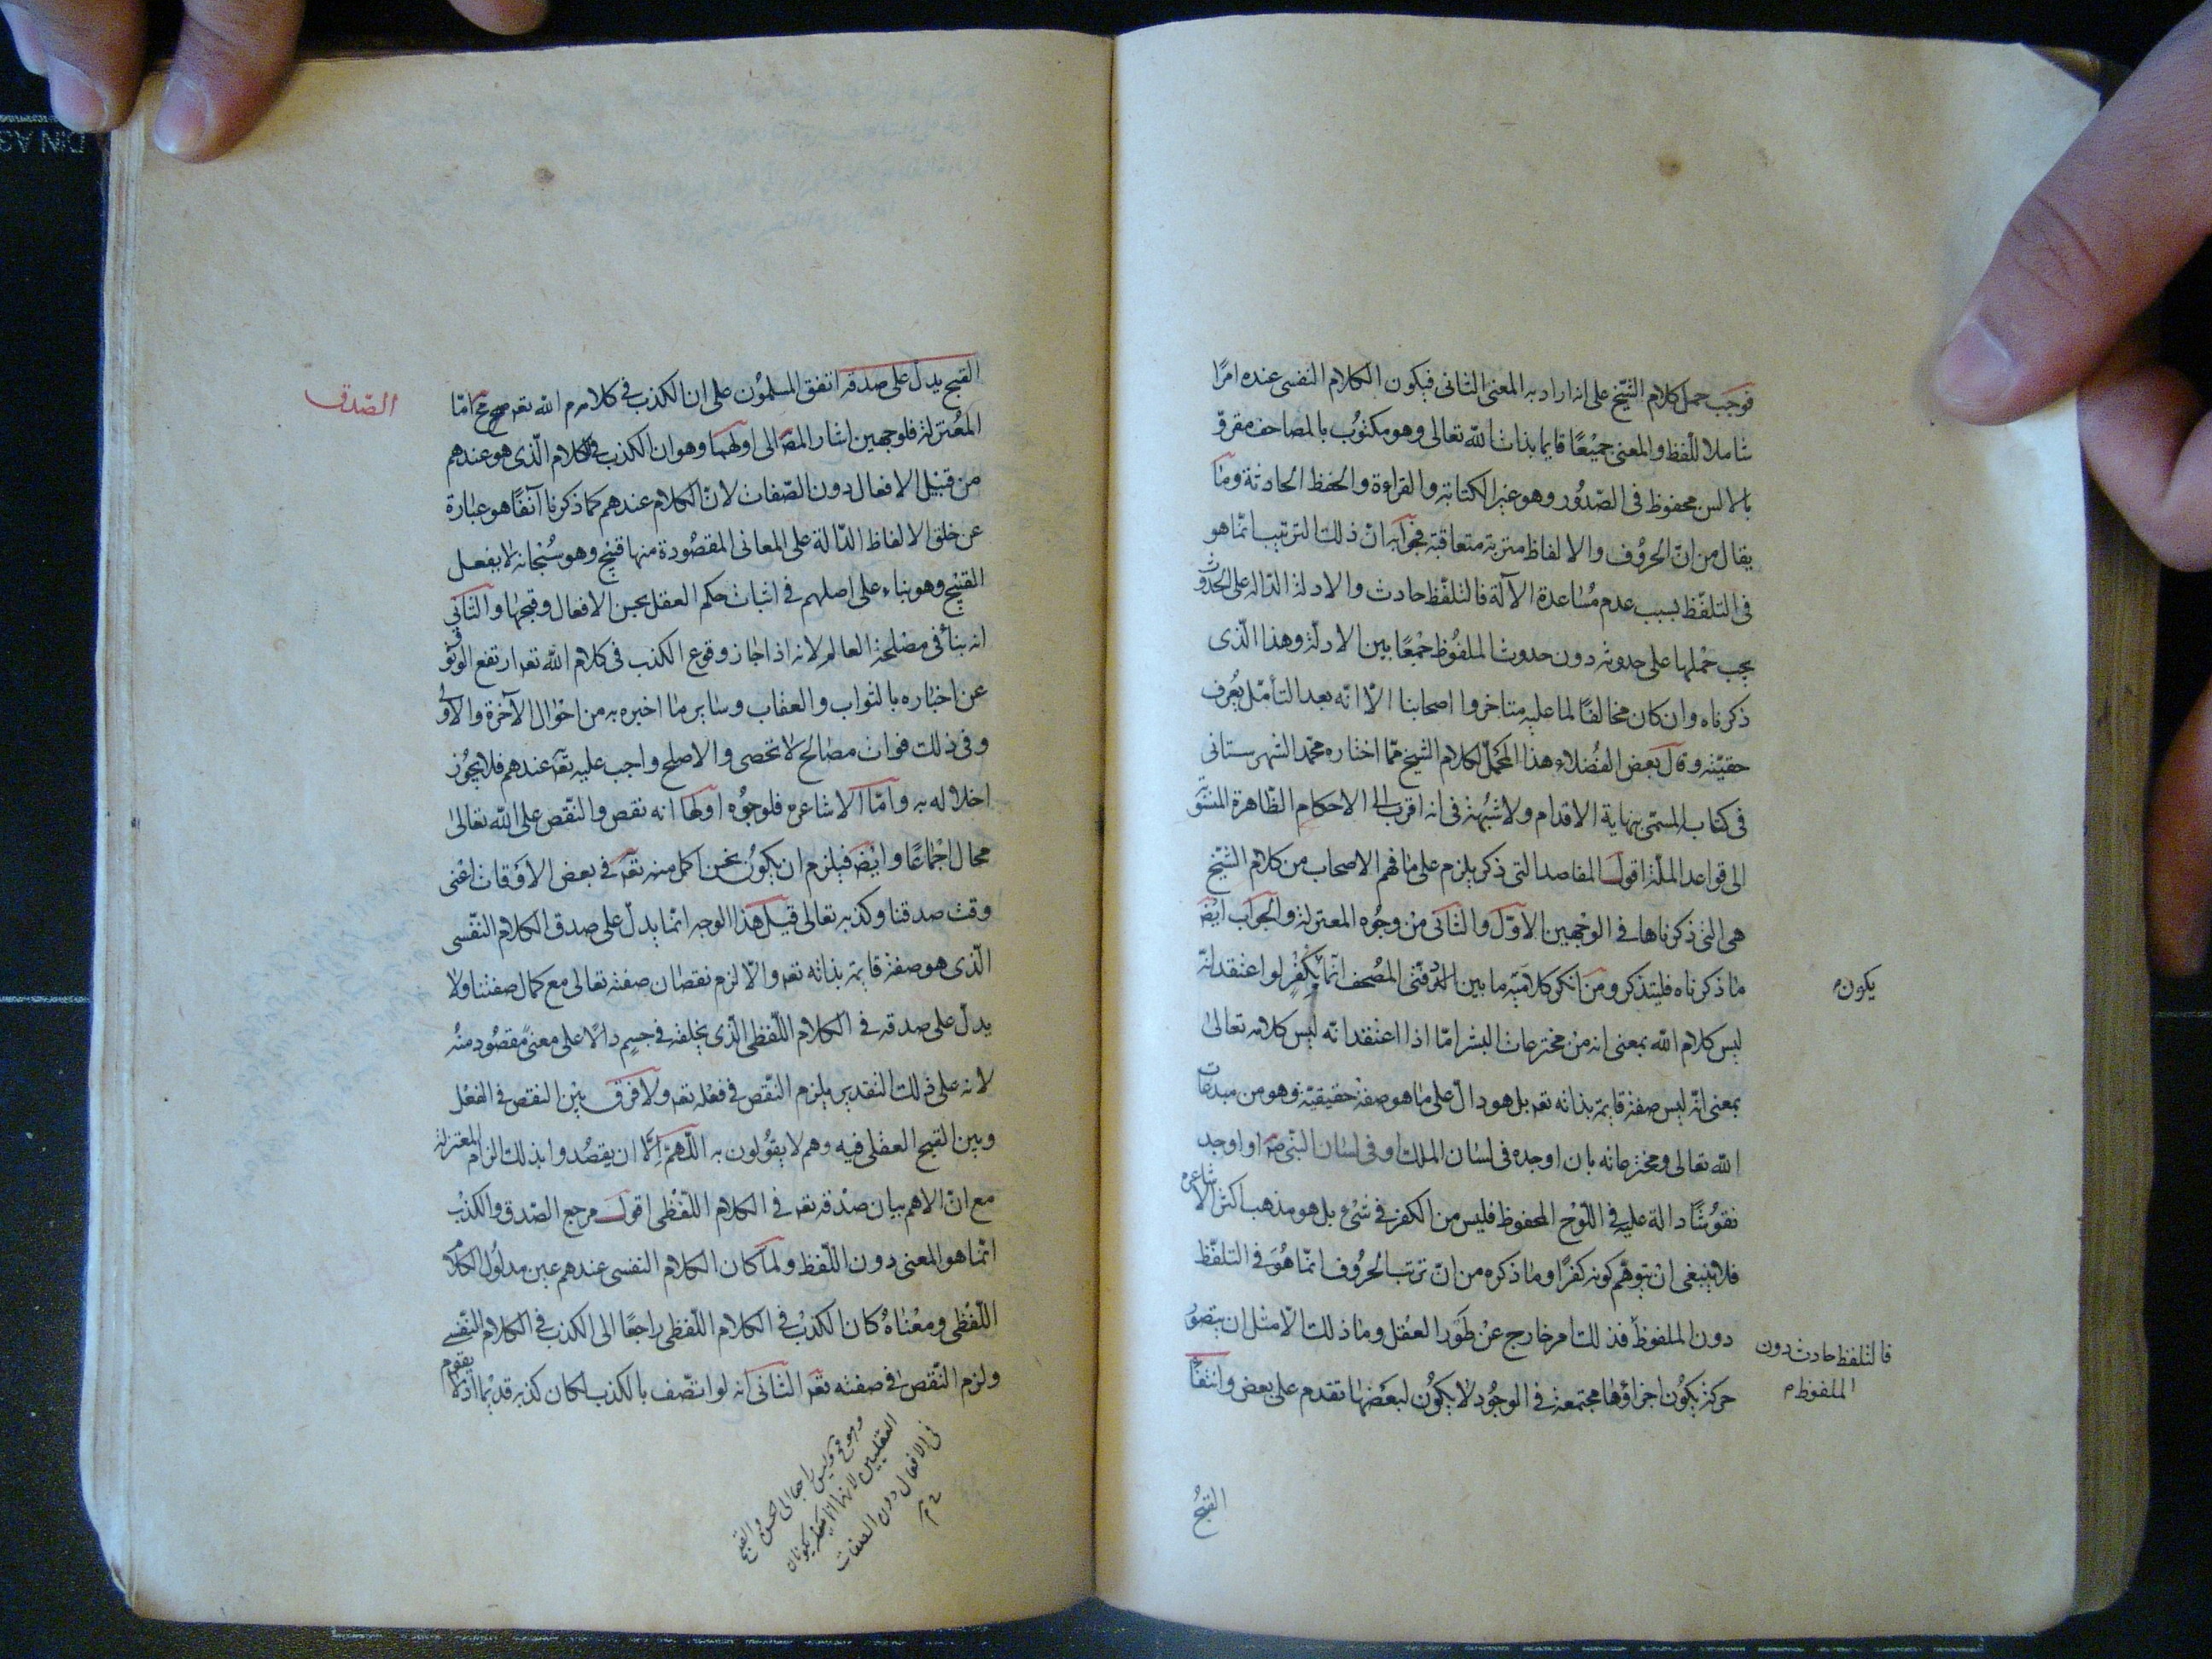 فوجب حمل كلام الشيخ على انه اراد به المعنى الثانى فيكون الكلام النفسى عنده امرًا
شاملا للفظ والمعنى جميعًا قايما بذات الله تعالى وهو مكتوب بالمصاحف مقروّ
بالالسن محفوظ فى الصّدُور وهو غير الكتابة والقراءة والحفظ الحادثة وما
يقال من انّ الحرُوف والالفاظ مترتبة متعاقبة فجوابه انّ ذلك الترتيب انّما هو
فى التلفّظ بسبب عدم مُسَاعدة الآلة فالتلفّظ حادث والادلة الدّالة على الحدُوث
يجب حَملها على حدوثه دون حدوث الملفُوظ جمْعًا بين الادلّة وهذا الّذى
ذكرناه وان كان مخالفًا لما عليه متاخروا اصحابنا الّا انّه بعد التأمّل يُعرف
حقيّته وقال بعض الفُضلاء هذا المحمل لكلام الشيخ ممّا اختاره محمّد الشهرستانى
فى كتابه المسمّى بنهاية الاقدام ولا شبُهة فى انه اقرب الى الاحكام الظّاهرة المنسوبة
الى قواعد الملّة اقول المفاصد التى ذكر يلزم على ما فهم الاصحاب من كلام الشيخ
هى التى ذكرناها فى الوَجهين الاوّل والثانى من وجُوه المعتزلة والجواب ايْضً
ما ذكرناه فليتذكر ومَن انكر كلاميّة ما بين الدّفّتى المصْحف انّما يُكْفر لو اعتقد انّه
يكون
ليس كلام الله بمعنى انه منْ مخترعات البشر امّا اذا اعتقد انّه ليس كلام الله تعالى
بمعنى انّه ليس صفة قايمة بذاته تعه بل هو دالّ على ما هو صفة حقيقيّة وهو من مبدعات
الله تعالى ومخترعاته بان اوجده فى لسان الملك او فى لسان النّبى صَ او اوجد
نقوُشًا دالة عليه فى اللّوْح المحفوظ فليس من الكفر فى شىء بل هو مذهب اكثر الاشاعرة
فلا ينبغى انْ يتوهّم كونه كفرًا وما ذكره من انّ ترتب الحرُوف انّما هُوَ فى التلفّظ
دون الملفوظ فذلك امر خارج عنْ طَوْر العقْل وما ذلك الّا مثل ان يتصوّر
فالتلفظ حادث دون
الملفوظ م
حركة يكوُن اجزاؤها مجتمعة فى الوجُود لا يكوُن لبعضها تقدم على بعض وانتفا
القبحُ
القبح يدلّ على صدقه اتفق المسلمُون على ان الكذب فى كلام الله تعه مح امّا
الصّدق
المعُتزلة فلوجهين اشار المصَ الى اولهما وهو ان الكذب فى الكلام الّذى هو عندهم
من قبيْل الافعال دون الصّفات لانّ الكلام عندهم كما ذكرنا آنفًا هو عبَارة
عن خلق الالفاظ الدّالة على المعانى المقصُودة منها قبيح وهو سُبْحانه لا يفعل
القبيْح وهو بناء على اصلهم فى اثبات حكم العقل بحسن الافعال وقبحها والثانى
انه ينافى مصْلحة العالم لانه اذا جاز وقوع الكذب فى كلام الله تعه ارتفع الوثوق
عن اخباره بالثواب والعقاب وساير ما اخبر به من احْوال الآخرة والاولى
وفى ذلك فوات مصَالح لا تحصى والاصلح واجب عليه تعَه عندهم فلا يجُوز
اخلاله به وامّا الاشاعره فلوجُوه اولها انه نقص والنّقص على الله تعالى
محال اجْماعًا وايْضً فيلزم ان يكوُن نحن اكمل منه تعَه فى بعض الاَوْقات اعْنى
وقت صدقنا وكذبه تعالى قيل هذا الوجه انّما يدلّ على صدق الكلام النّفسى
الّذى هو صفة قايمة بذاته تعه والّا لزم نقصَان صفته تعالى مع كمال صفتنا ولا
يدلّ على صدقه فى الكلام اللّفظى الّذى يخلقه فى جسِم دالًا على معنىً مقصُود منُه
لانه على ذلك التقدير يلزم النّقص فى فعْله تعه ولا فرق بيْن النقص فى الفعْل
وبين القبح العقلى فيه وهم لا يقوُلون به اللّهمّ اِلّا ان يقصُدوا بذلك الزام المعتزلة
مع انّ الاهم بيان صدْقه تعه فى الكلام اللّفظى اقول مرجع الصّدق والكذْب
انّما هو المعنى دون اللّفظ ولمّا كان الكلام النفسى عندهم عين مدلوُل الكلام
اللّفظى ومعْناهُ كان الكذبْ فى الكلام اللّفظى راجعًا الى الكذب فى الكلام النّفسى
ولزم النّقص فى صفته تعَه الثانى انه لو اتصّف بالكذب لكان كذبه قديْما اذ لا يقوم
وليس راجعا الى الحسن والقبح
العقليين لانهما انما يكونان
فى الافعال دون الصفات